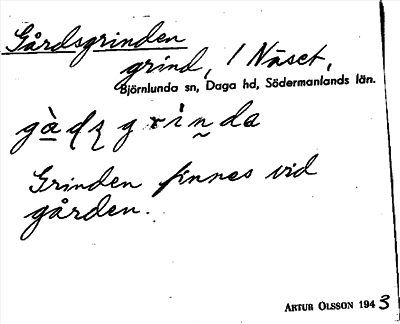 Gårdsgrinden
grind, / Näset,
Björnlunda sn, Daga hd, Södermanlands län.
Grinden finnes vid
gården.
ARTUR OLSSON 1943